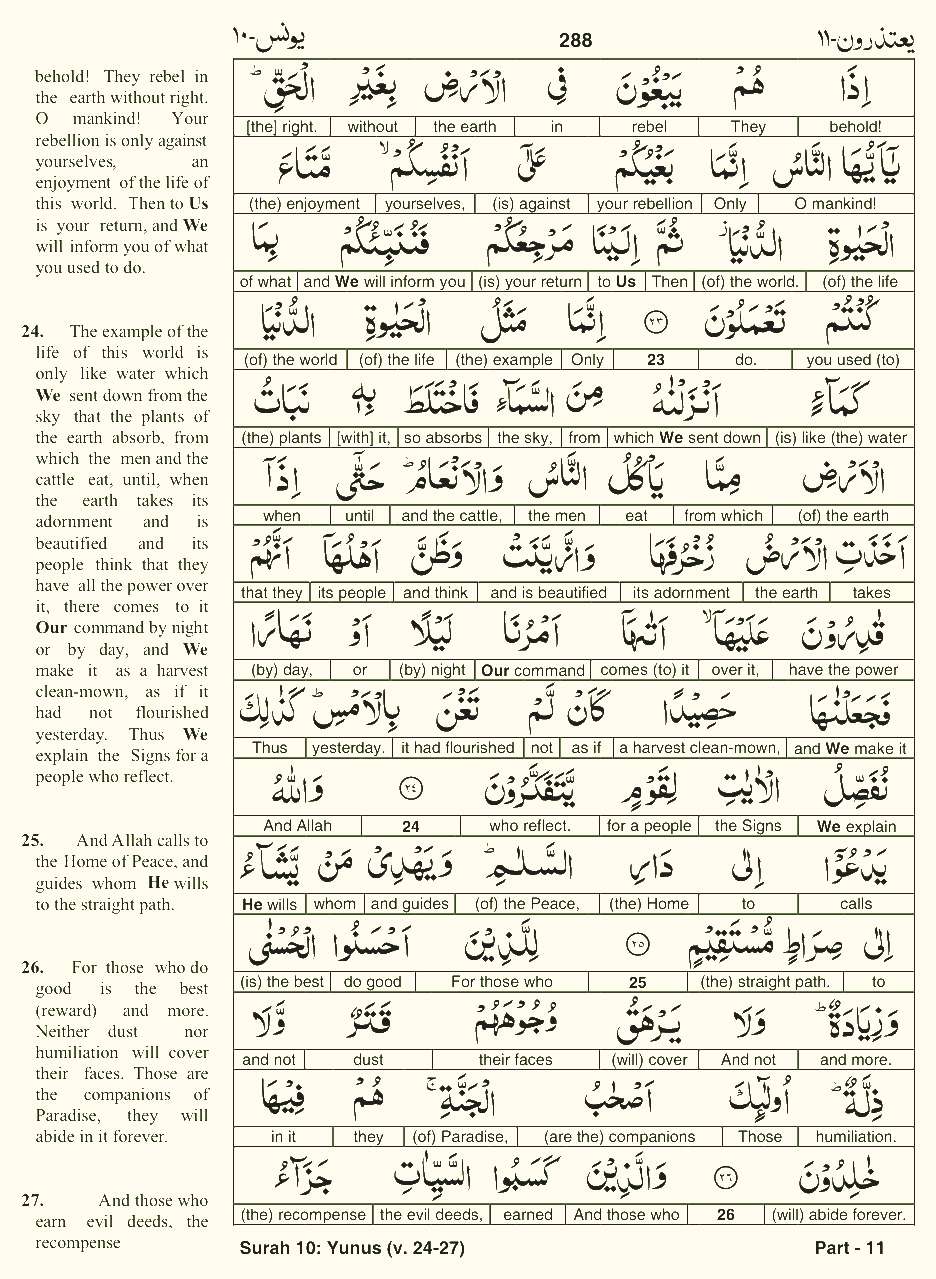 يونس-١٠
288
يعتذرون-١١
behold! They rebel in
the earth without right.
O mankind! Your
rebellion is only against
yourselves, an
enjoyment of the life of
this world. Then to Us
is your return, and We
will inform you of what
you used to do.
24. The example of the
life of this world is
only like water which
We sent down from the
sky that the plants of
the earth absorb, from
which the men and the
cattle eat, until, when
the earth takes its
adornment and is
beautified and its
people think that they
have all the power over
it, there comes to it
Our command by night
or by day, and We
make it as a harvest
clean-mown, as if it
had not flourished
yesterday. Thus We
explain the Signs for a
people who reflect.
25. And Allah calls to
the Home of Peace, and
guides whom He wills
to the straight path.
26. For those who do
good is the best
(reward) and more.
Neither dust nor
humiliation will cover
their faces. Those are
the companions of
Paradise, they will
abide in it forever.
27. And those who
earn evil deeds, the
recompense
اِذَا هُمْ يَبْغُوْنَ فِى الْاَرْضِ بِغَيْرِ الْحَقِّ ؕ
behold! They rebel in the earth without [the] right.
يٰۤاَيُّهَا النَّاسُ اِنَّمَا بَغْيُكُمْ عَلٰٓى اَنْفُسِكُمْ ۙ مَّتَاعَ
O mankind! Only your rebellion (is) against yourselves, (the) enjoyment
الْحَيٰوةِ الدُّنْيَا ز ثُمَّ اِلَيْنَا مَرْجِعُكُمْ فَنُنَبِّئُكُمْ بِمَا
(of) the life (of) the world. Then to Us (is) your return and We will inform you of what
كُنْتُمْ تَعْمَلُوْنَ ٢٣ اِنَّمَا مَثَلُ الْحَيٰوةِ الدُّنْيَا
you used (to) do. 23 Only (the) example (of) the life (of) the world
كَمَآءٍ اَنْزَلْنٰهُ مِنَ السَّمَآءِ فَاخْتَلَطَ بِهٖ نَبَاتُ
(is) like (the) water which We sent down from the sky, so absorbs [with] it, (the) plants
الْاَرْضِ مِمَّا يَاْكُلُ النَّاسُ وَالْاَنْعَامُ ؕ حَتّٰۤى اِذَاۤ
(of) the earth from which eat the men and the cattle, until when
اَخَذَتِ الْاَرْضُ زُخْرُفَهَا وَازَّيَّنَتْ وَظَنَّ اَهْلُهَاۤ اَنَّهُمْ
takes the earth its adornment and is beautified and think its people that they
قٰدِرُوْنَ عَلَيْهَاۤ ۙ اَتٰىهَاۤ اَمْرُنَا لَيْلًا اَوْ نَهَارًا
have the power over it, comes (to) it Our command (by) night or (by) day,
فَجَعَلْنٰهَا حَصِيْدًا كَاَنْ لَّمْ تَغْنَ بِالْاَمْسِ ؕ كَذٰلِكَ
and We make it a harvest clean-mown, as if not it had flourished yesterday. Thus
نُفَصِّلُ الْاٰيٰتِ لِقَوْمٍ يَّتَفَكَّرُوْنَ ٢٤ وَاللّٰهُ
We explain the Signs for a people who reflect. 24 And Allah
يَدْعُوْۤا اِلٰى دَارِ السَّلٰمِ ؕ وَيَهْدِىْ مَنْ يَّشَآءُ
calls to (the) Home (of) the Peace, and guides whom He wills
اِلٰى صِرَاطٍ مُّسْتَقِيْمٍ ٢٥ لِلَّذِيْنَ اَحْسَنُوا الْحُسْنٰى
to (the) straight path. 25 For those who do good (is) the best
وَزِيَادَةٌ ؕ وَلَا يَرْهَقُ وُجُوْهَهُمْ قَتَرٌ وَّلَا
and more. And not (will) cover their faces dust and not
ذِلَّةٌ ؕ اُولٰٓئِكَ اَصْحٰبُ الْجَنَّةِ ۚ هُمْ فِيْهَا
humiliation. Those (are the) companions (of) Paradise, they in it
خٰلِدُوْنَ ٢٦ وَالَّذِيْنَ كَسَبُوا السَّيِّاٰتِ جَزَآءُ
(will) abide forever. 26 And those who earned the evil deeds, (the) recompense
Surah 10: Yunus (v. 24-27)
Part - 11